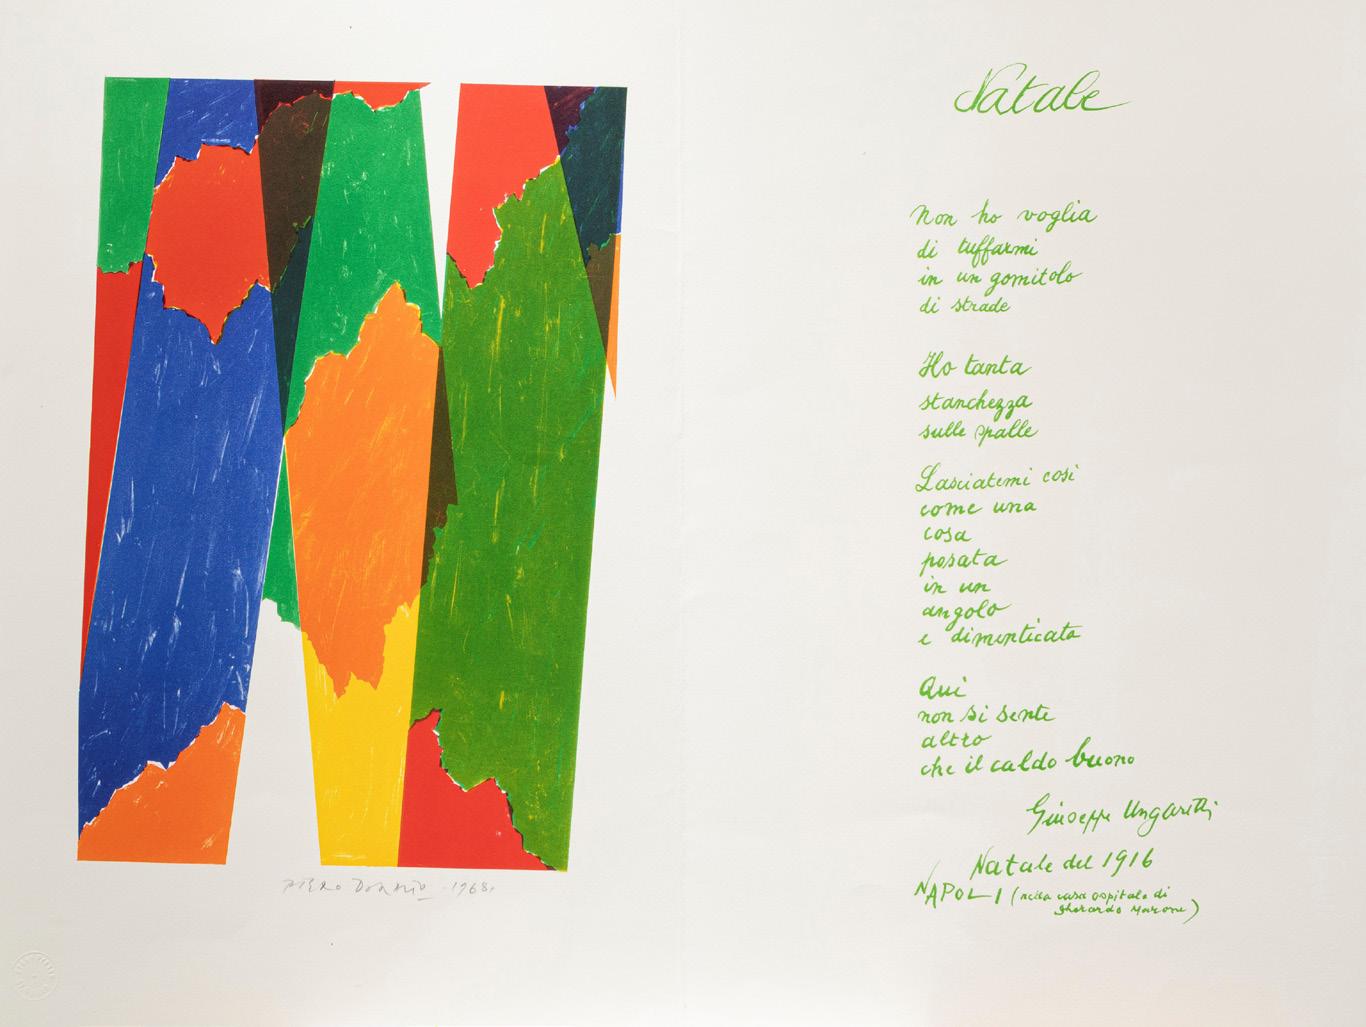 PIERO DORAZIO - 1968.
Natale
Non ho voglia
di tuffarmi
in un gomitolo
di strade
Ho tanta
stanchezza
sulle spalle
Lasciatemi così
come una
cosa
posata
in un
angolo
e dimenticata
Qui
non si sente
altro
che il caldo buono
Giuseppe Ungaretti
Natale del 1916
NAPOLI (nella casa ospitale di
Gherardo Marone)